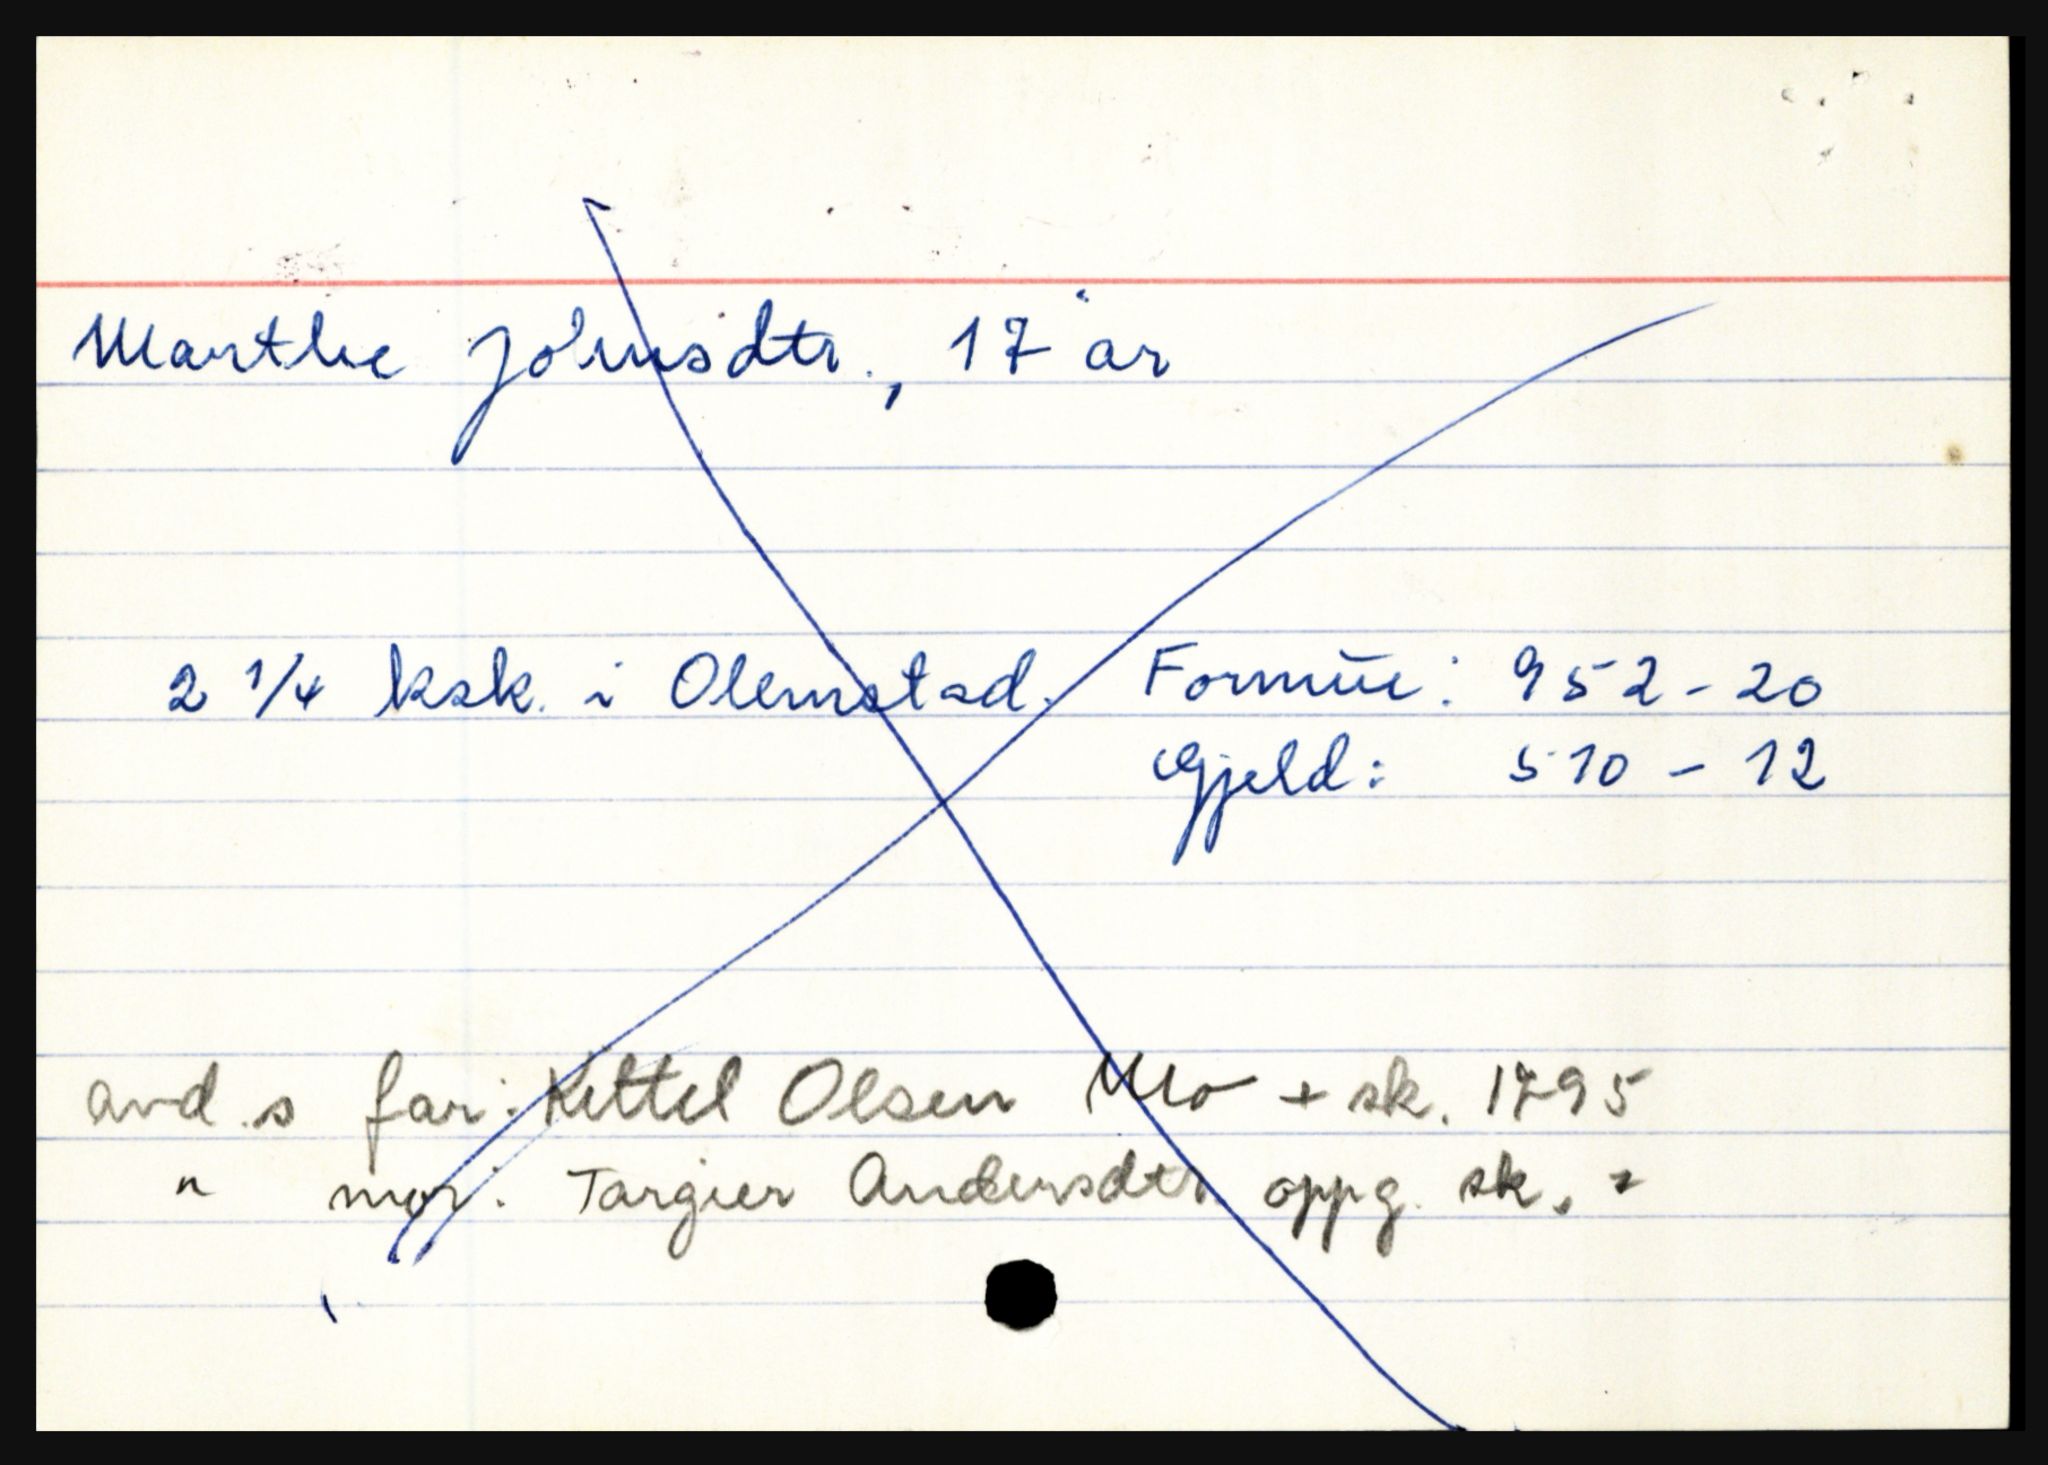 Marthe Johnsdtr., 17 år
2 1/4 ksk. i Olemstad. Formue: 952-20
Gjeld: 510 - 12
avd.s far: Kittel Olsen Mo + sk. 1795
" mor: Targier Andersdtr. oppg. sk. "